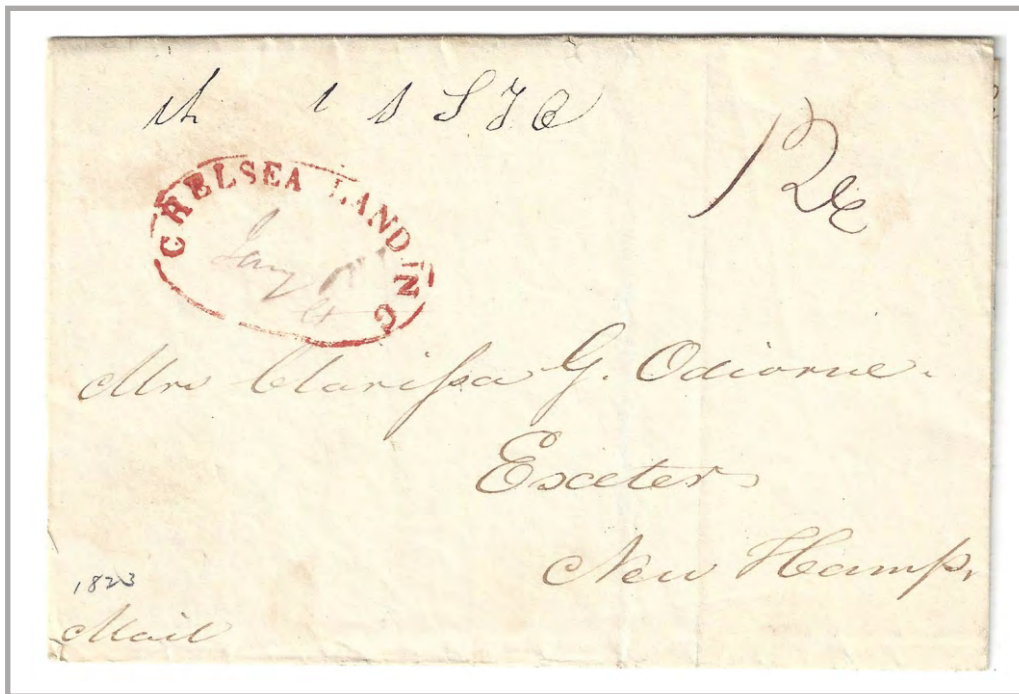 S F O
12c
CHELSEA LANDING
Jany
Mrs Clarissa G. Odiorne.
Exeter
New Hamp.
1823
Mail